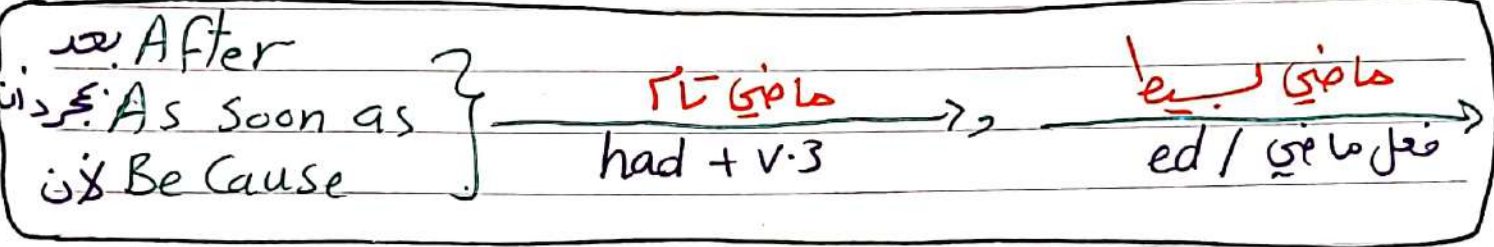 بعد After
بمجرد ان As Soon as
لان Be Cause
ماضي تام
had + v.3
,
ماضي بسيط
ed / فعل ماضي